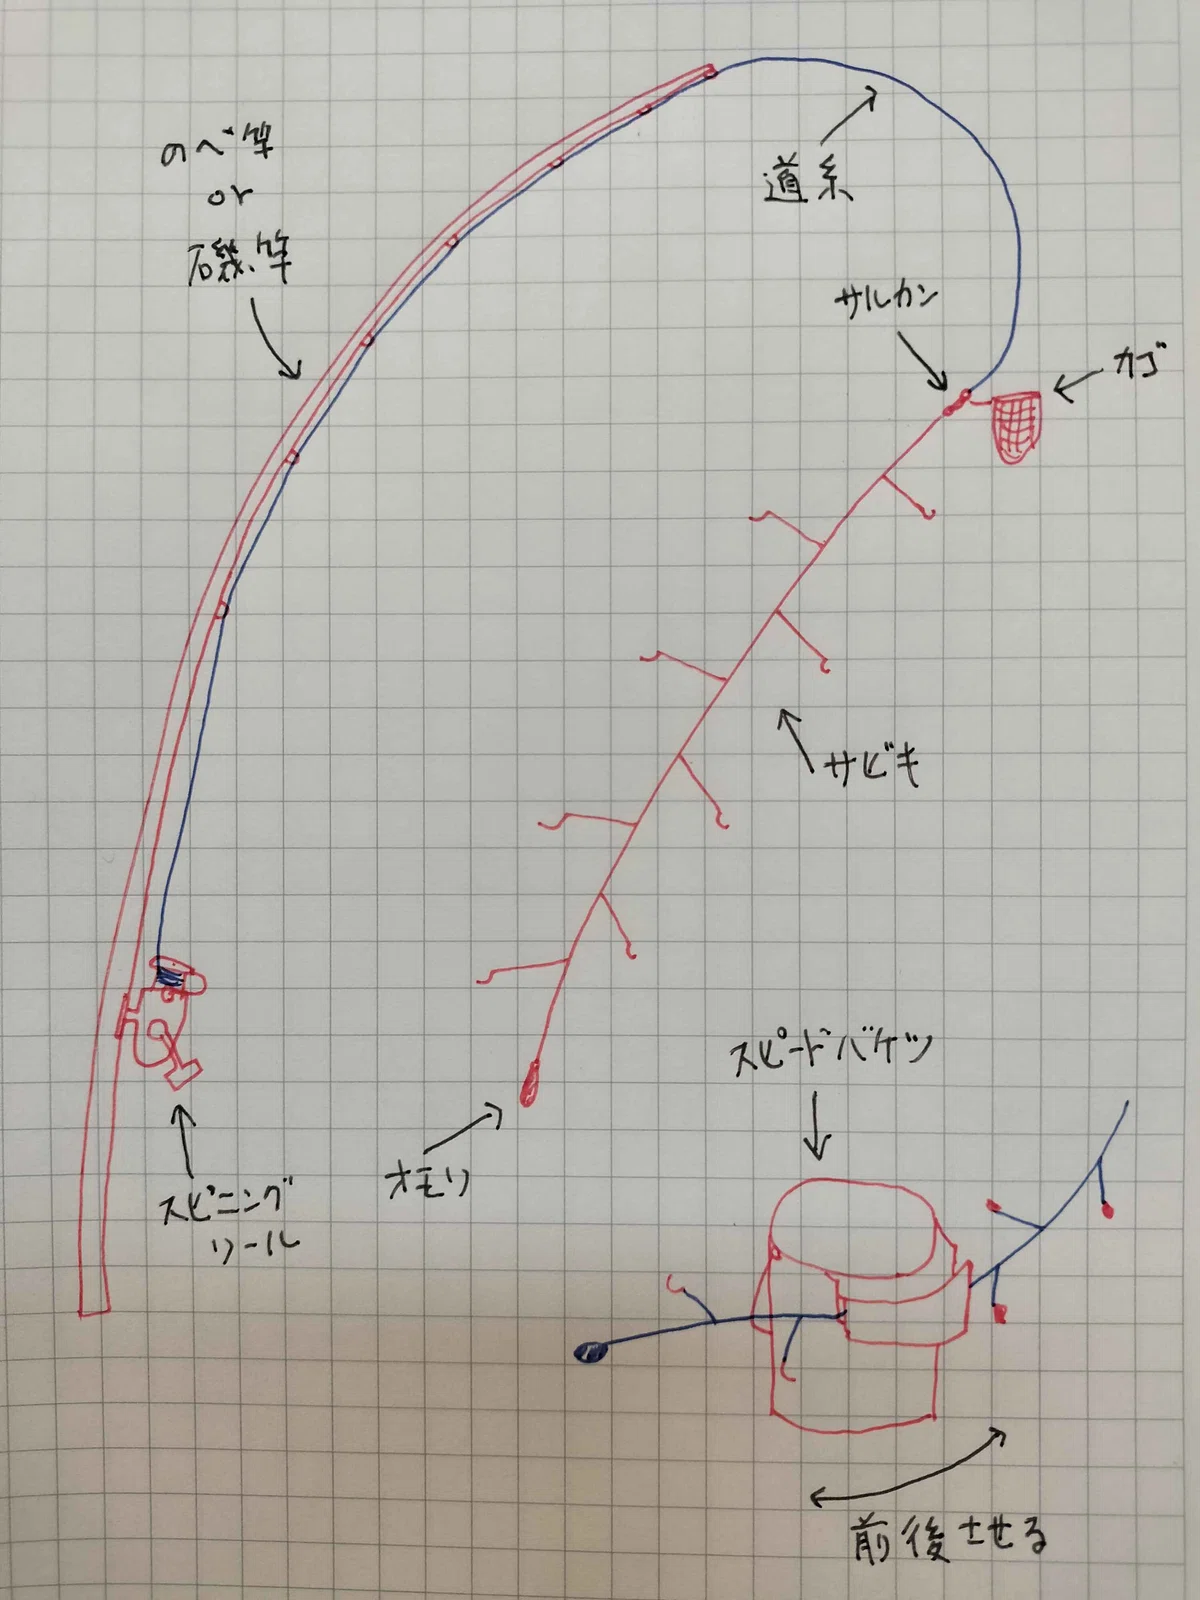 のべ竿
or
磯竿
道糸
サルカン
カゴ
サビキ
スピードバケツ
オモリ
スピニング
リール
前後させる